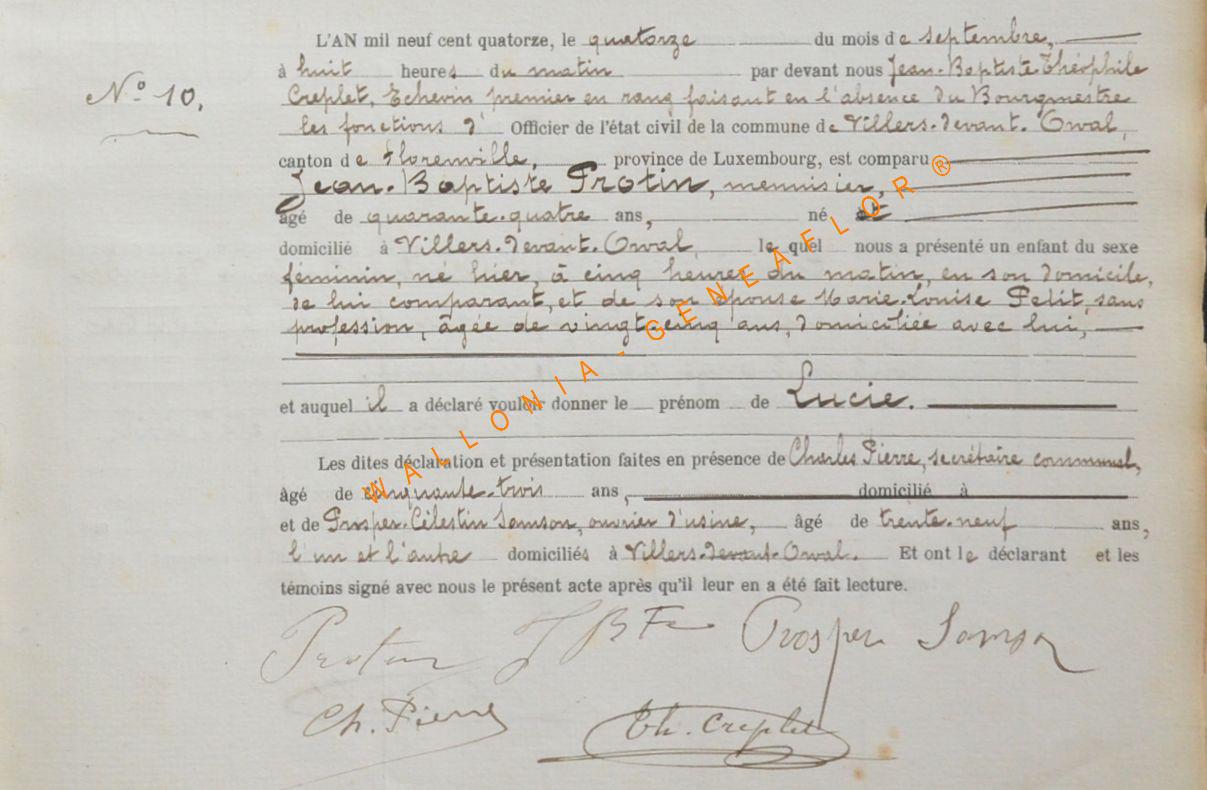 L'AN mil neuf cent quatorze, le quatorze du mois de septembre,
à huit heures du matin par devant nous Jean-Baptiste Théophile
N.º 10. Creplet, Echevin premier en rang faisant en l'absence du Bourgmestre
les fonctions d' Officier de l'état civil de la commune de Villers-devant-Orval,
canton de Florenville, province de Luxembourg, est comparu
Jean-Baptiste Protin, menuisier,
âgé de quarante-quatre ans, né et
domicilié à Villers-devant-Orval, lequel nous a présenté un enfant du sexe
féminin, né hier, à cinq heures du matin, en son domicile,
de lui comparant, et de son épouse Marie-Louise Petit, sans
profession, âgée de vingt-cinq ans, domiciliée avec lui,
et auquel il a déclaré vouloir donner le prénom de Lucie.
Les dites déclaration et présentation faites en présence de Charles Pierre, secrétaire communal,
âgé de cinquante-trois ans, domicilié à
et de Prosper-Célestin Samson, ouvrier d'usine, âgé de trente-neuf ans,
l'un et l'autre domiciliés à Villers-devant-Orval. Et ont le déclarant et les
témoins signé avec nous le présent acte après qu'il leur en a été fait lecture.
Protin J Bte Prosper Samson
Ch. Pierre Th. Creplet
WALLONIA - GENEAFLOR ®